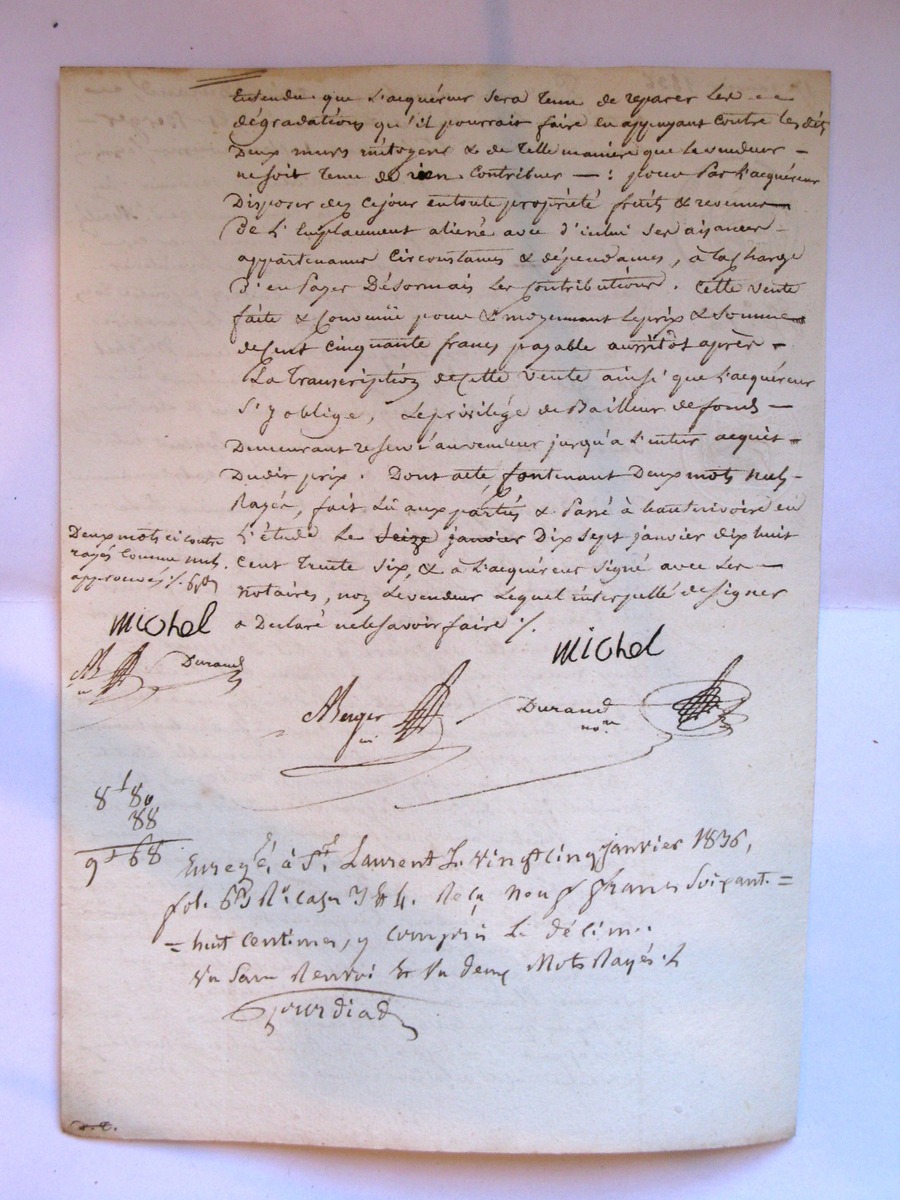 Entendu que l'acquéreur sera tenu de reparer les
dégradations qu'il pourrait faire en appuyant contre les dits
Deux murs mitoyens & de telle maniere que le vendeur
ne soit tenu de rien contribuer : pour Par l'acquéreur
Disposer dès ce jour en toute propriété fruits & revenus
De l'Emplacement aliené avec d'icelui ses aisances
appartenances Circonstances & dépendances, à la charge
D'en Payer Désormais les Contributions. Cette Vente
faite & Convenue pour & moyennant le prix & Somme
de Cent cinquante francs payable aussitôt après
La Transcription de Cette Vente ainsi que l'acquéreur
S'y oblige, Le privilége de Bailleur de fonds
Demeurant reservé au vendeur jusqu'à l'entier acquit
Dudit prix. Dont acte, Contenant Deux mots nuls
Rayés, fait Lû aux parties & Passé à hauterivoire en
l'étude Le Seize janvier Dix Sept janvier dix huit
Cent Trente Six, & a L'acquéreur signé avec Les
notaires, non Le vendeur Lequel interpellé de signer
a Declaré ne le savoir faire ./.
Deux mots ci contre
rayés Comme nuls
approuvés ./.
Michel
Durand
Michel
Berger
Durand
no.re
8f 80
88
9f 68
Enregé. à St. Laurent L. vingt cinq janvier 1836,
fol. Ro. case 3 & 4. Reçu neuf francs Soixant=
=huit Centimes, y Compris le décime.
Vu Sans Renvoi & Vu deux Mots Rayés
Gourdiad